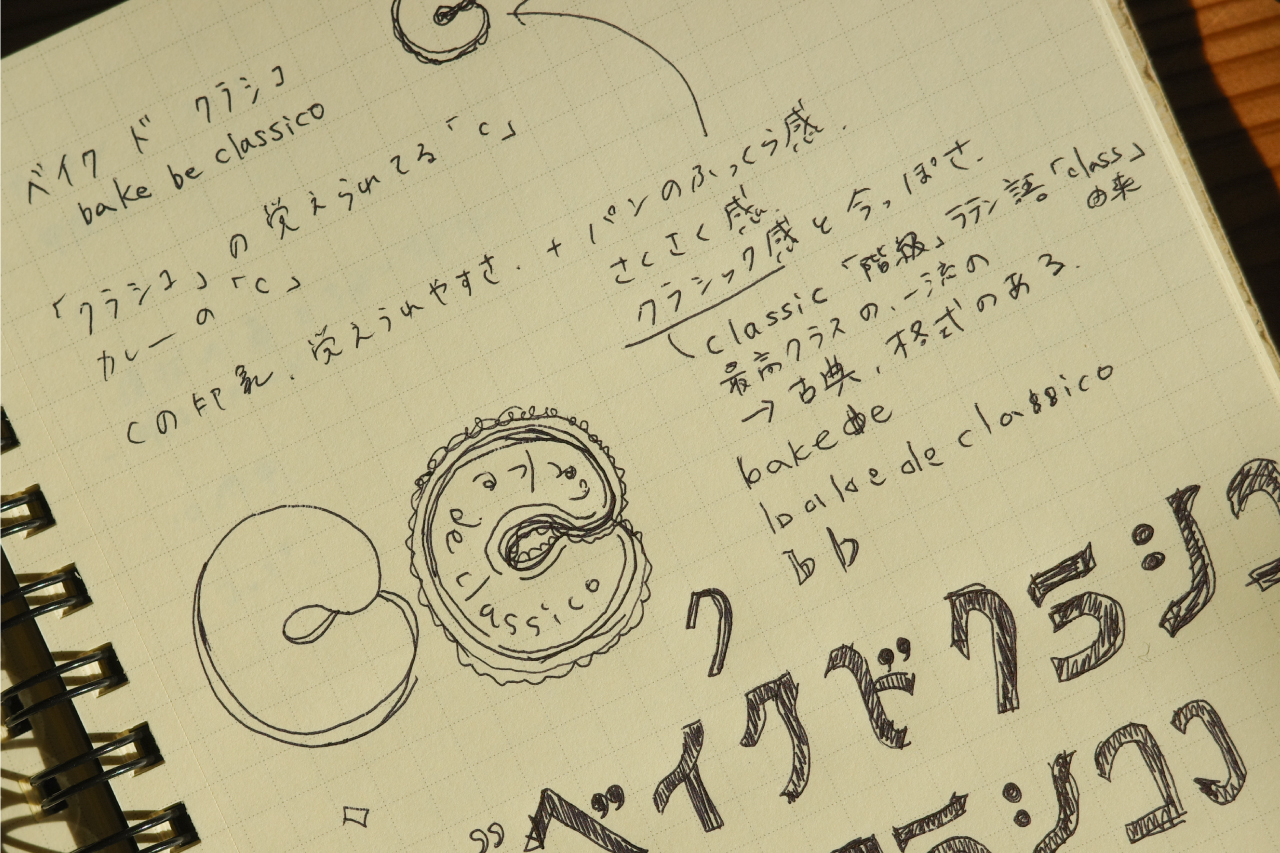 ベイク ド クラシコ
bake be classico
「クラシコ」の覚えられてる「c」
カレーの「c」
Cの印象、覚えられやすさ. + パンのふっくら感.
さくさく感.
クラシック感と今っぽさ.
classic「階級」ラテン語「class」
由来
最高クラスの、一流の
→古典、格式のある.
bakede
bake de classico
bb
classico
ク
ベイクドクラシコ
ラシココ